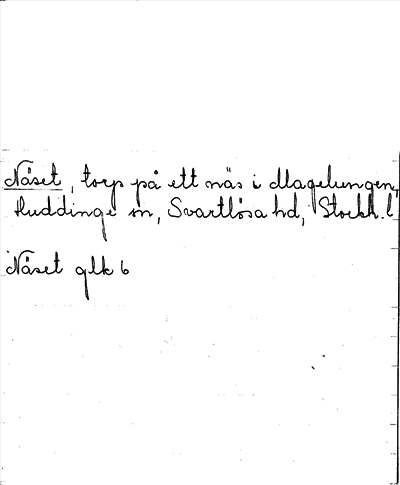 Näset, torp på ett näs i Magelungen,
Huddinge sn, Svartlösa hd, Stockh. l
Näset glk 6